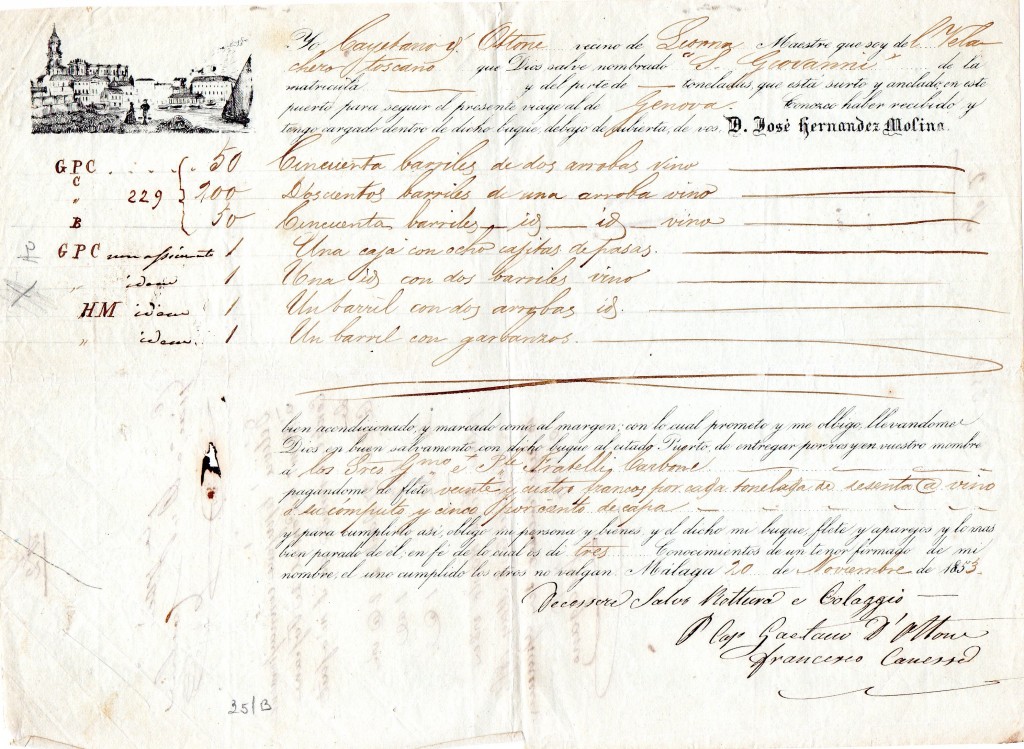 Yo Cayetano d' Ottone vecino de Liorna Maestre que soy del
chero toscano que Dios salve, nombrado "S. Giovanni" de la
matricula y del porte de toneladas, que está surto y anclado en este
puerto para seguir el presente viage al de Genova. Conozco haber recibido y
tengo cargado dentro de dicho buque, debajo de cubierta, de vos, D. José Hernandez Molina.
GPC . . . . . 50 Cincuenta barriles de dos arrobas vino
C
" 229 200 Doscientos barriles de una arroba vino
B 50 Cincuenta barriles id id vino
GPC 1 Una caja con ocho cajitas de pasas.
" idem 1 Una id con dos barriles vino
HM idem 1 Un barril con dos arrobas id.
" idem 1 Un barril con garbanzos.
X A
bien acondicionado, y marcado como al margen; con lo cual prometo y me obligo, llevandome
Dios en buen salvamento con dicho buque al citado Puerto, de entregar por vos y en vuestro nombre
á los Sres Gmo e Fratelli Carbone
pagándome de flete veinte y cuatro francos por cada tonelada de sesenta @ vino
á su computo y cinco por ciento de capa
y para cumplirlo asi, obligo mi persona y bienes y el dicho mi buque, flete y aparejos y lo mas
bien parado de el, en fe de lo cual os di tres Conocimientos de un tenor firmado de mi
nombre, el uno cumplido los otros no valgan. Málaga 20 de Noviembre de 1853.
Salvo Rottura e Colaggio
P Cap Gaetano D'Ottone
Francesco
25/B